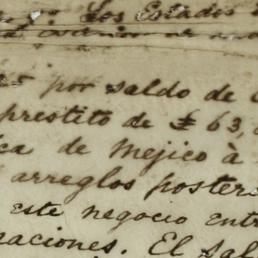 Los Estados
por saldo de
prestito de £ 63,
de Mejico à
arreglos poster
este negocio entr
naciones. El sal